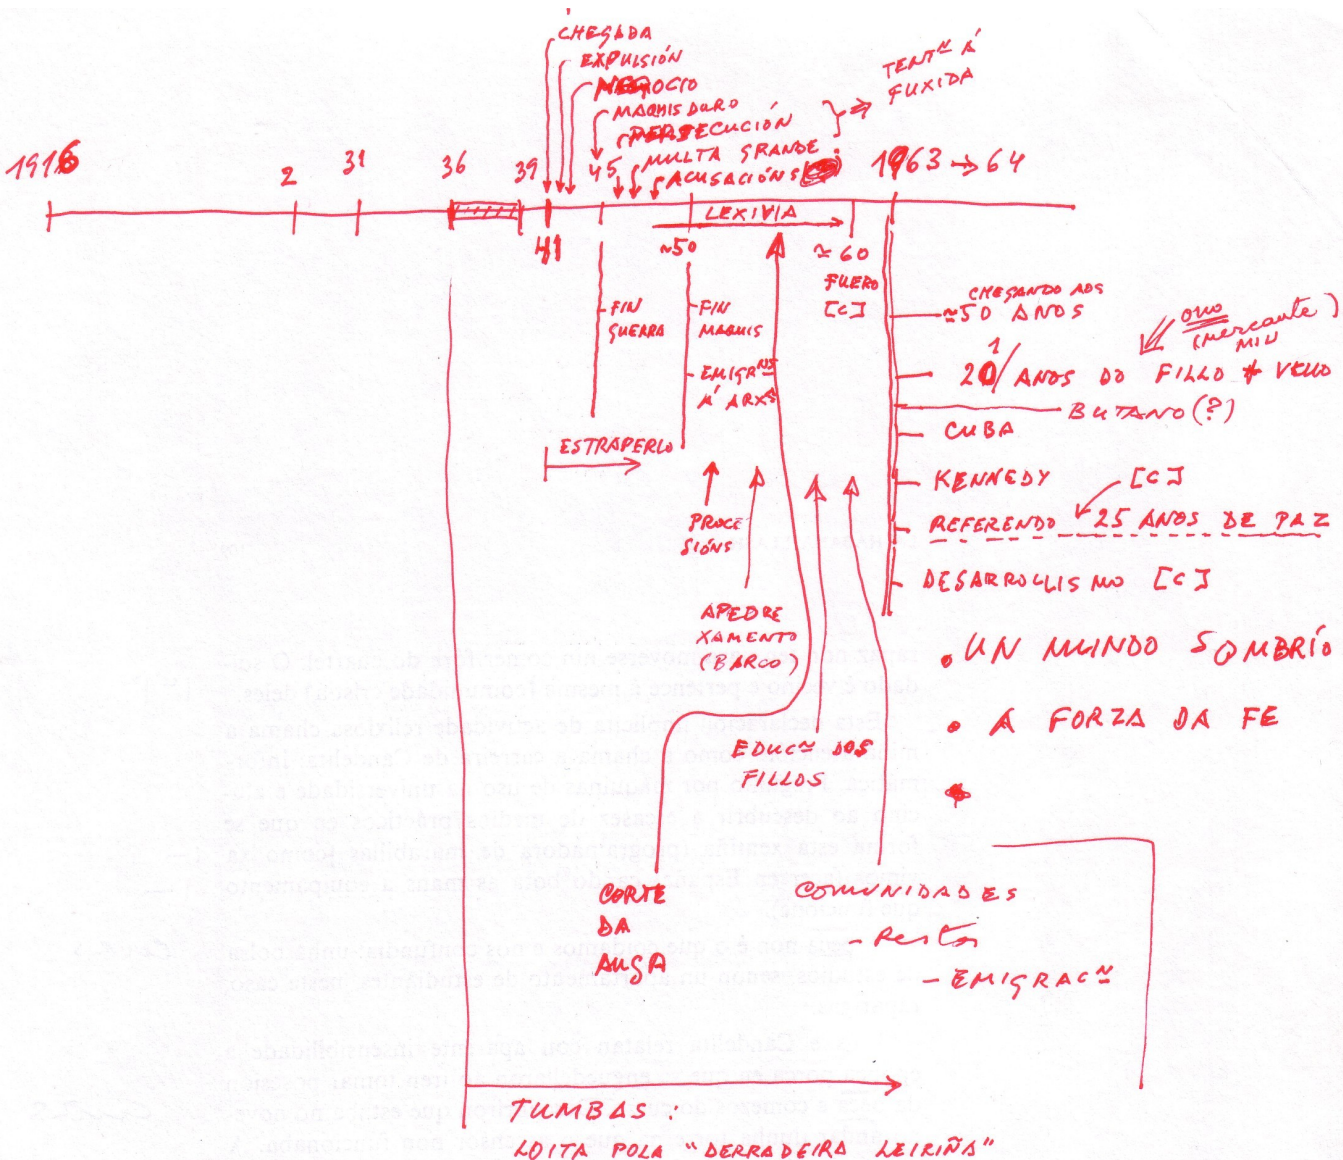 CHEGADA
EXPULSIÓN
NEGOCIO
MAQUIS DURO
PERSECUCIÓN
MULTA GRANDE
ACUSACIÓNS
TENTN Á
FUXIDA
1916
2
31
36
39
45
1963 → 64
LEXIVIA
41
≈50
≈ 60
FUERO
[C]
FIN
GUERRA
FIN
MAQUIS
EMIGRNS
Á ARXA
ESTRAPERLO
CHEGANDO AOS
≈50 ANOS
(mercante)
MIN
20/1 ANOS DO FILLO + VELLO
BUTANO (?)
CUBA
KENNEDY
[C]
REFERENDO
25 ANOS DE PAZ
DESARROLLISMO [C]
PROCE
SIÓNS
APEDRE
XAMENTO
(BARCO)
EDUCN DOS
FILLOS
• UN MUNDO SOMBRÍO
• A FORZA DA FE
CORTE
DA
AUGA
COMUNIDADES
- RESTOS
- EMIGRACN
TUMBAS:
LOITA POLA "DERRADEIRA LEIRIÑA"